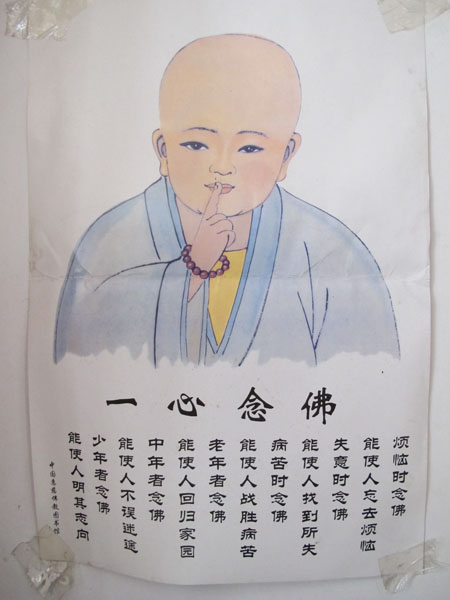 一心念佛
烦恼时念佛
能使人忘去烦恼
失意时念佛
能使人找到所失
病苦时念佛
能使人战胜病苦
老年者念佛
能使人回归家园
中年者念佛
能使人不误迷途
少年者念佛
能使人明其志向
中国慈佛教图书馆